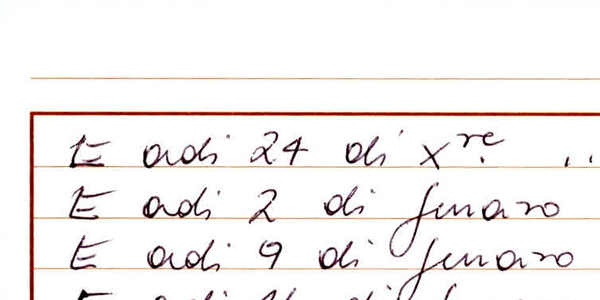 E adi 24 di Xre. ..
E adi 2 di Genaro
E adi 9 di Genaro
E adi di